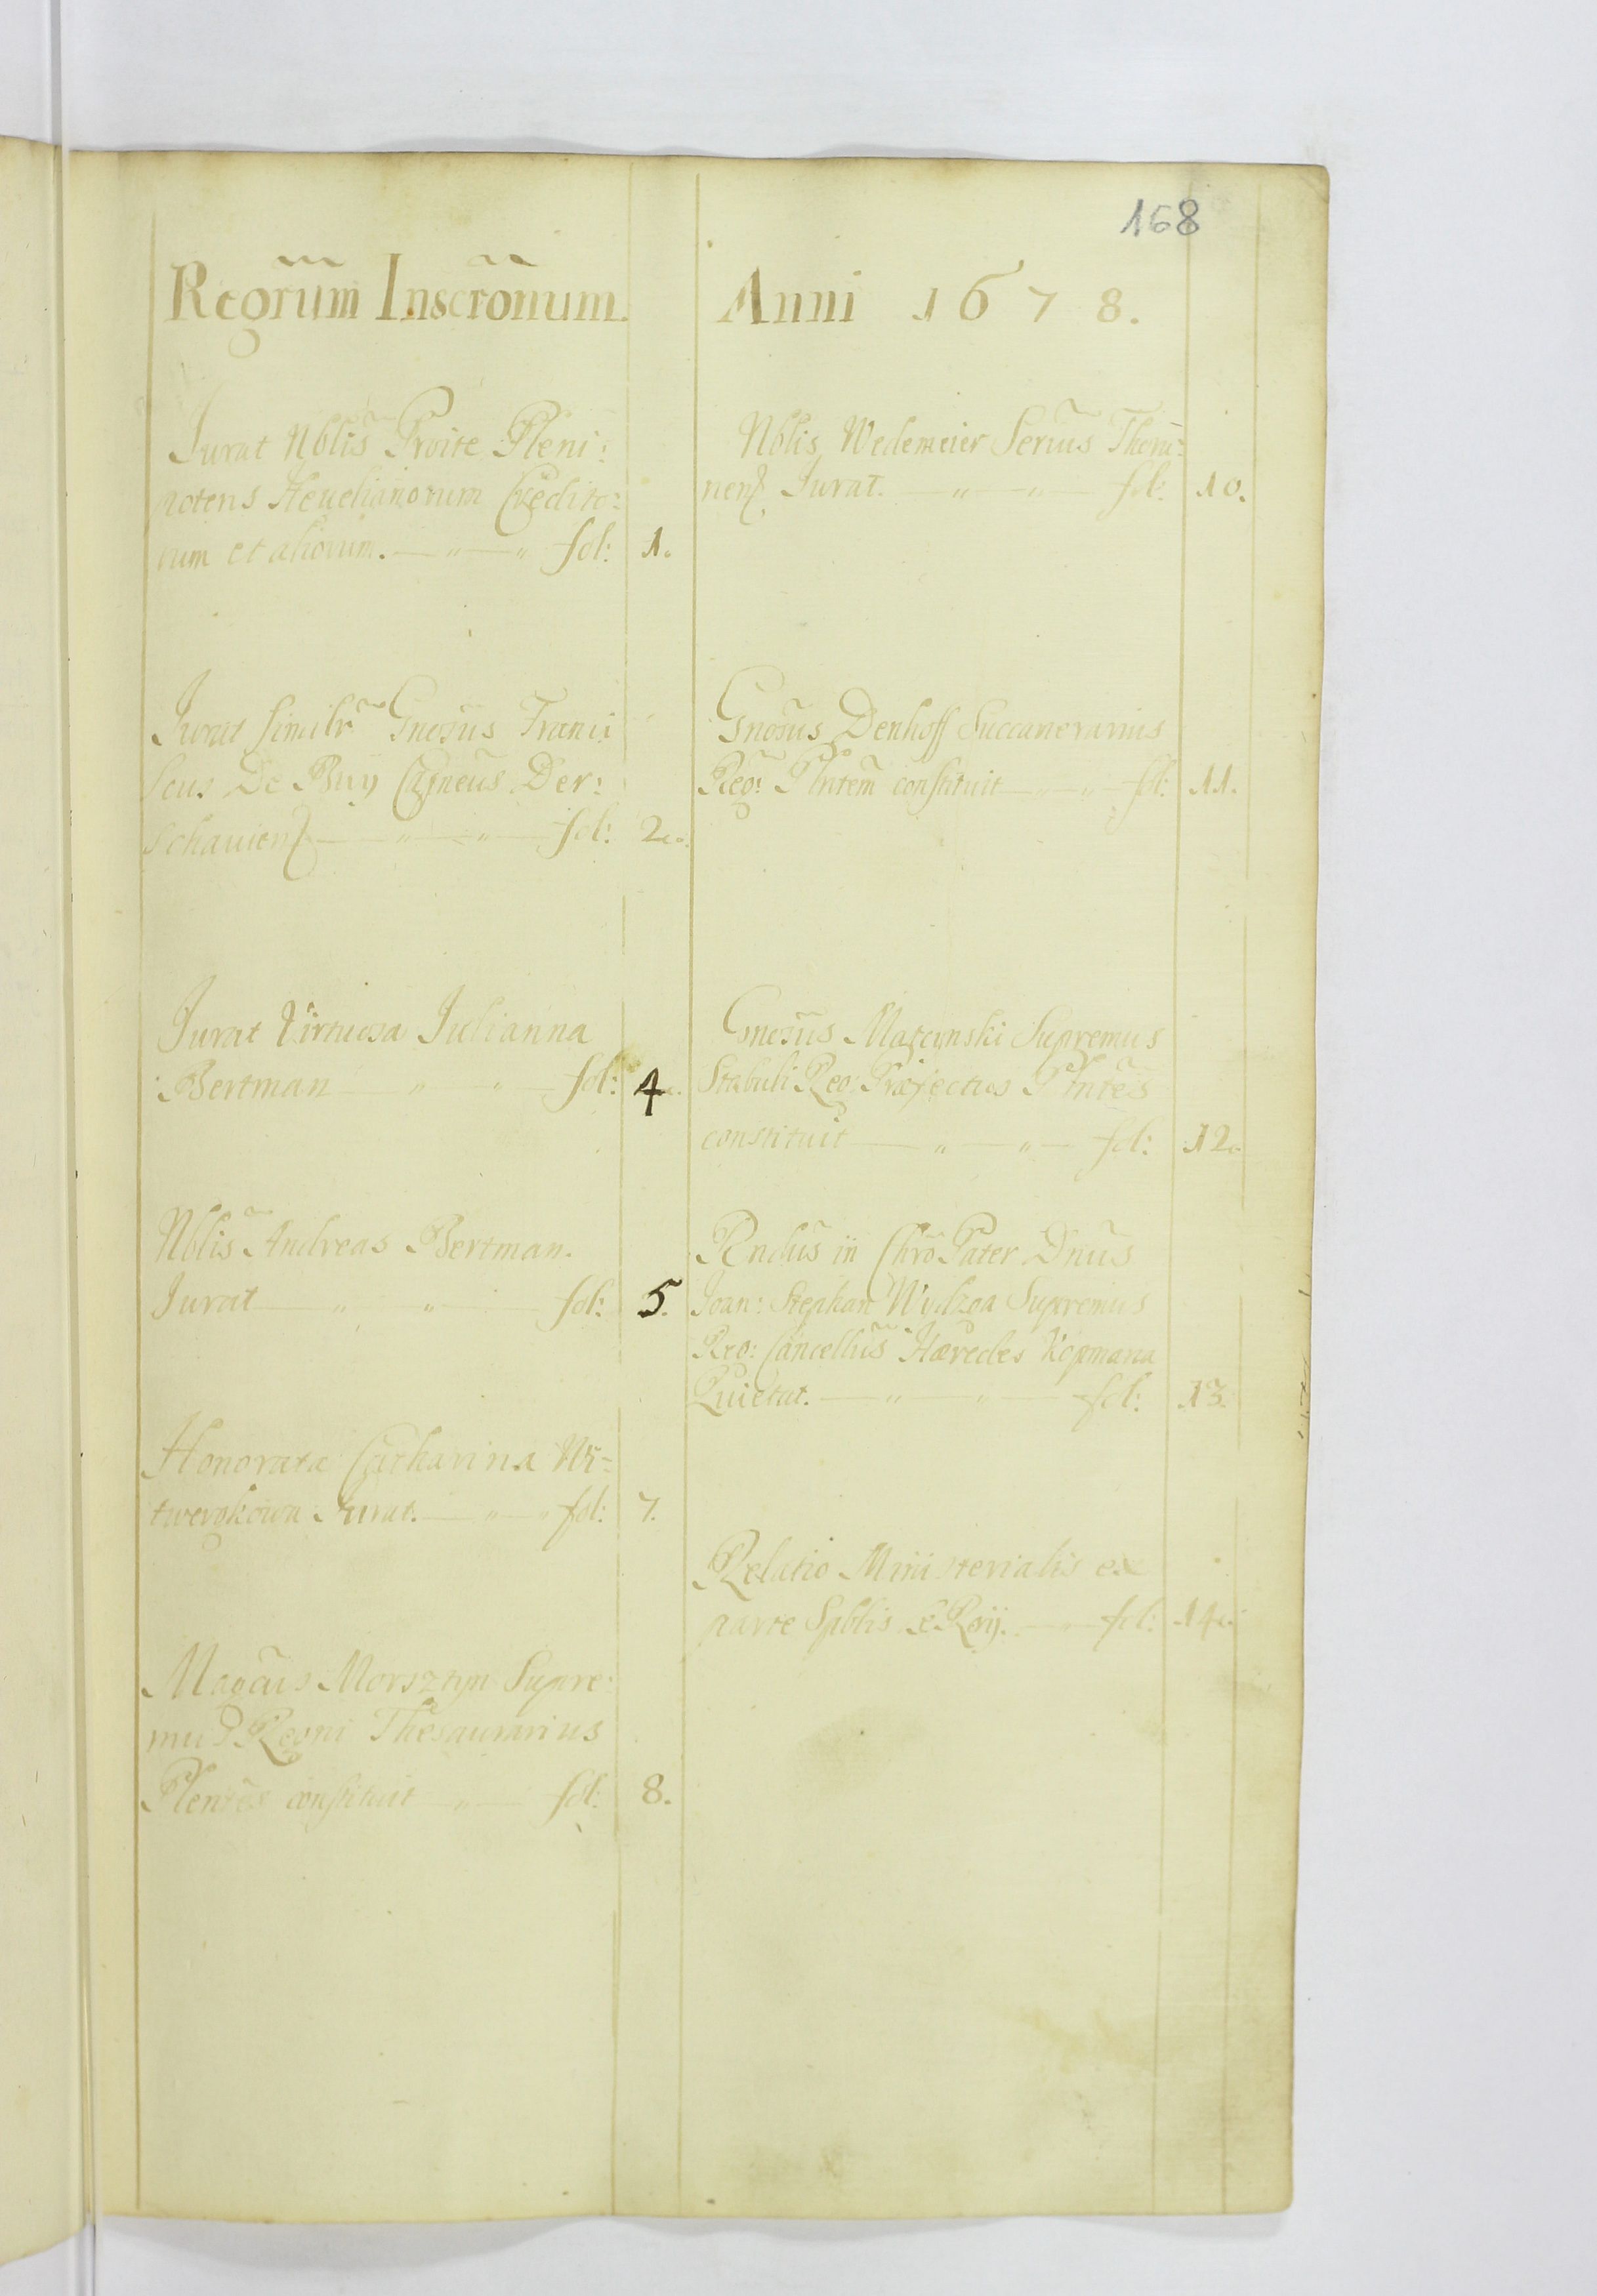 168
Regrum Inscronum. Anni 1678.
Jurat Nblis Proite Pleni:
potens Heuelianorum Credito:
rum et aliorum. — " — " fol: 1.
Jurat similr Gnosus Franci
scus De Buy Czineus Der:
schauien — " — " — fol: 2.
Jurat Virtuosa Julianna
Bertman — " — " — fol: 4.
Nblis Andreas Bertman.
Jurat — " — " — fol: 5.
Honorata Catharina
Jurat. — " — " fol: 7.
Magcus Morsztyn Supre:
mus Regni Thesaurarius
Plentes constituit — " — fol: 8.
Nblis Wedemeier Serius Thoru:
nen Jurat. — " — " — fol: 10.
Gnosus Denhoff Succamerarius
Reg: Plntem constituit — " — " — fol: 11.
Gnosus Matczinski Supremus
Stabuli Reg: Præfectus Plntes
constituit — " — " — fol: 12.
Rndus in Chro Pater Dnus
Joan: Stephan Wydzga Supremus
Reg: Cancellus Hæredes Kopmana
Quietat. — " — " — fol: 13.
Relatio Ministerialis ex
parte Spblis le Roy. — " — fol: 14.